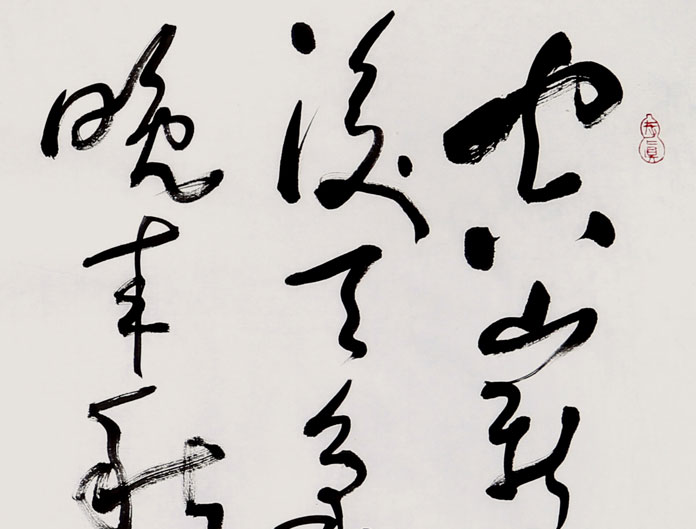 空山新
後天氣
晚來秋